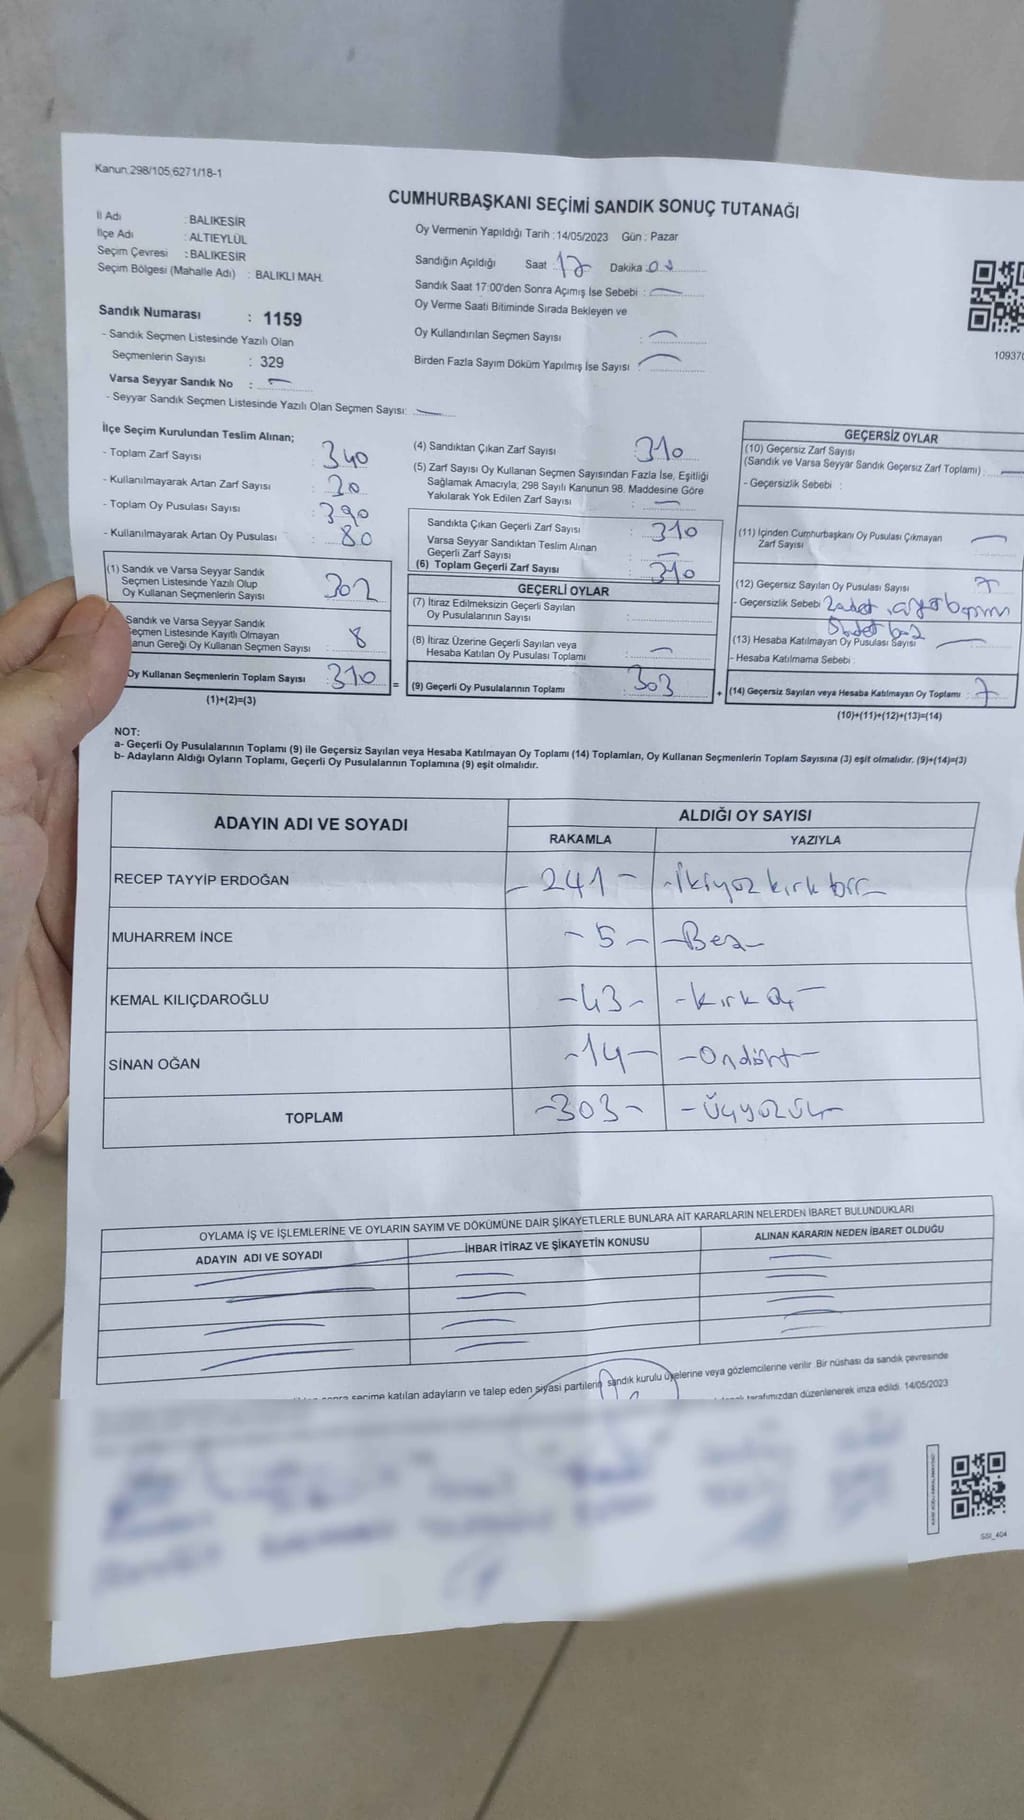 Kanun:298/105,6271/18-1
CUMHURBAŞKANI SEÇİMİ SANDIK SONUÇ TUTANAĞI
İl Adı : BALIKESİR
İlçe Adı : ALTIEYLÜL
Seçim Çevresi : BALIKESİR
Seçim Bölgesi (Mahalle Adı) : BALIKLI MAH.
Sandık Numarası : 1159
- Sandık Seçmen Listesinde Yazılı Olan
Seçmenlerin Sayısı : 329
Varsa Seyyar Sandık No :
- Seyyar Sandık Seçmen Listesinde Yazılı Olan Seçmen Sayısı:
Oy Vermenin Yapıldığı Tarih :14/05/2023 Gün : Pazar
Sandığın Açıldığı Saat Dakika
Sandık Saat 17:00'den Sonra Açılmış İse Sebebi :
Oy Verme Saati Bitiminde Sırada Bekleyen ve
Oy Kullandırılan Seçmen Sayısı :
Birden Fazla Sayım Döküm Yapılmış İse Sayısı :
10937
İlçe Seçim Kurulundan Teslim Alınan;
- Toplam Zarf Sayısı : 340
- Kullanılmayarak Artan Zarf Sayısı : 30
- Toplam Oy Pusulası Sayısı : 390
- Kullanılmayarak Artan Oy Pusulası : 80
(1) Sandık ve Varsa Seyyar Sandık
Seçmen Listesinde Yazılı Olup
Oy Kullanan Seçmenlerin Sayısı : 302
Sandık ve Varsa Seyyar Sandık
Seçmen Listesinde Kayıtlı Olmayan
Kanun Gereği Oy Kullanan Seçmen Sayısı : 8
Oy Kullanan Seçmenlerin Toplam Sayısı : 310
(1)+(2)=(3)
(4) Sandıktan Çıkan Zarf Sayısı : 310
(5) Zarf Sayısı Oy Kullanan Seçmen Sayısından Fazla İse, Eşitliği
Sağlamak Amacıyla, 298 Sayılı Kanunun 98. Maddesine Göre
Yakılarak Yok Edilen Zarf Sayısı :
Sandıkta Çıkan Geçerli Zarf Sayısı : 310
Varsa Seyyar Sandıktan Teslim Alınan
Geçerli Zarf Sayısı :
(6) Toplam Geçerli Zarf Sayısı : 310
GEÇERLİ OYLAR
(7) İtiraz Edilmeksizin Geçerli Sayılan
Oy Pusulalarının Sayısı :
(8) İtiraz Üzerine Geçerli Sayılan veya
Hesaba Katılan Oy Pusulası Toplamı :
= (9) Geçerli Oy Pusulalarının Toplamı : 303
GEÇERSİZ OYLAR
(10) Geçersiz Zarf Sayısı
(Sandık ve Varsa Seyyar Sandık Geçersiz Zarf Toplamı) :
- Geçersizlik Sebebi :
(11) İçinden Cumhurbaşkanı Oy Pusulası Çıkmayan
Zarf Sayısı :
(12) Geçersiz Sayılan Oy Pusulası Sayısı : 7
- Geçersizlik Sebebi 2 adet
(13) Hesaba Katılmayan Oy Pusulası Sayısı :
- Hesaba Katılmama Sebebi :
+ (14) Geçersiz Sayılan veya Hesaba Katılmayan Oy Toplamı : 7
(10)+(11)+(12)+(13)=(14)
NOT:
a- Geçerli Oy Pusulalarının Toplamı (9) ile Geçersiz Sayılan veya Hesaba Katılmayan Oy Toplamı (14) Toplamları, Oy Kullanan Seçmenlerin Toplam Sayısına (3) eşit olmalıdır. (9)+(14)=(3)
b- Adayların Aldığı Oyların Toplamı, Geçerli Oy Pusulalarının Toplamına (9) eşit olmalıdır.
ADAYIN ADI VE SOYADI ALDIĞI OY SAYISI
RAKAMLA YAZIYLA
RECEP TAYYİP ERDOĞAN - 241 - - ikiyüz kırk bir -
MUHARREM İNCE - 5 - - Beş -
KEMAL KILIÇDAROĞLU - 43 - - kırk üç -
SİNAN OĞAN - 14 - - Ondört -
TOPLAM - 303 - - Üçyüzüç -
OYLAMA İŞ VE İŞLEMLERİNE VE OYLARIN SAYIM VE DÖKÜMÜNE DAİR ŞİKAYETLERLE BUNLARA AİT KARARLARIN NELERDEN İBARET BULUNDUKLARI
ADAYIN ADI VE SOYADI İHBAR İTİRAZ VE ŞİKAYETİN KONUSU ALINAN KARARIN NEDEN İBARET OLDUĞU
sonra seçime katılan adayların ve talep eden siyasi partilerin sandık kurulu üyelerine veya gözlemcilerine verilir. Bir nüshası da sandık çevresinde
tarafımızdan düzenlenerek imza edildi. 14/05/2023
SSI_404